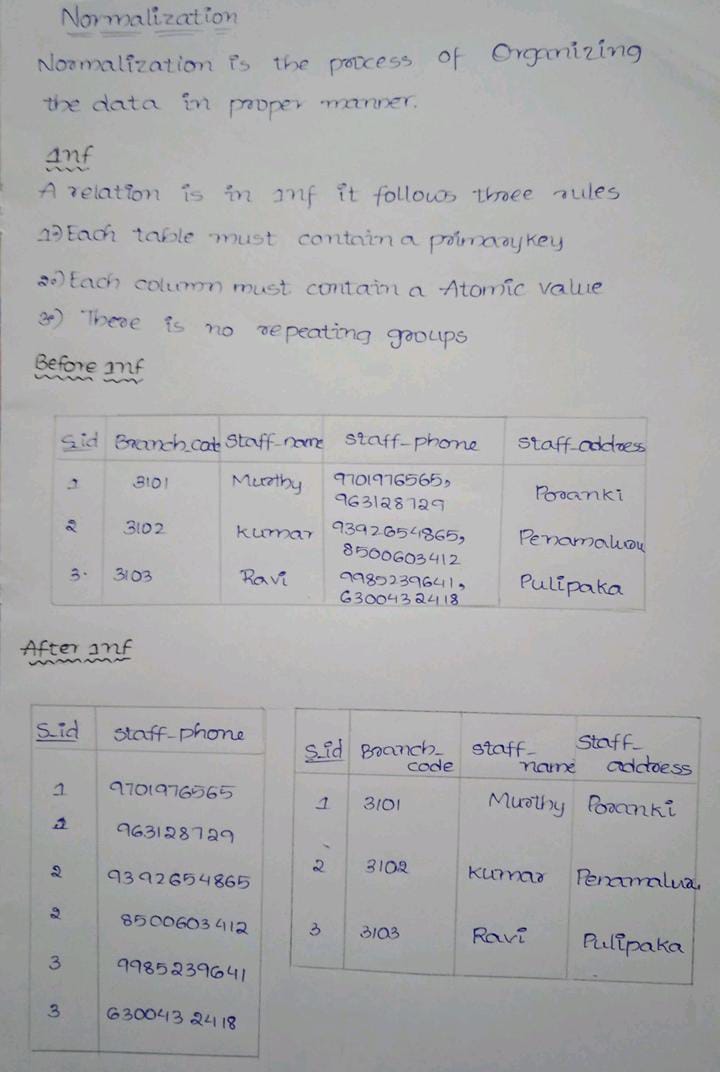 Normalization
Normalization is the process of Organizing
the data in proper manner.
1nf
A relation is in 1nf it follows three rules
1) Each table must contain a primary key
2) Each column must contain a Atomic value
3) There is no repeating groups
Before 1nf
S_id Branch_code Staff_name staff_phone staff_address
1 3101 Murthy 9701976565,
963128729 Poranki
2 3102 kumar 9392654865,
8500603412 Penamaluru
3. 3103 Ravi 9985239641,
6300432418 Pulipaka
After 1nf
S_id staff_phone
1 9701976565
1 963128729
2 9392654865
2 8500603412
3 9985239641
3 6300432418
S_id Branch_ staff_ Staff_
code name address
1 3101 Murthy Poranki
2 3102 kumar Penamaluru
3 3103 Ravi Pulipaka